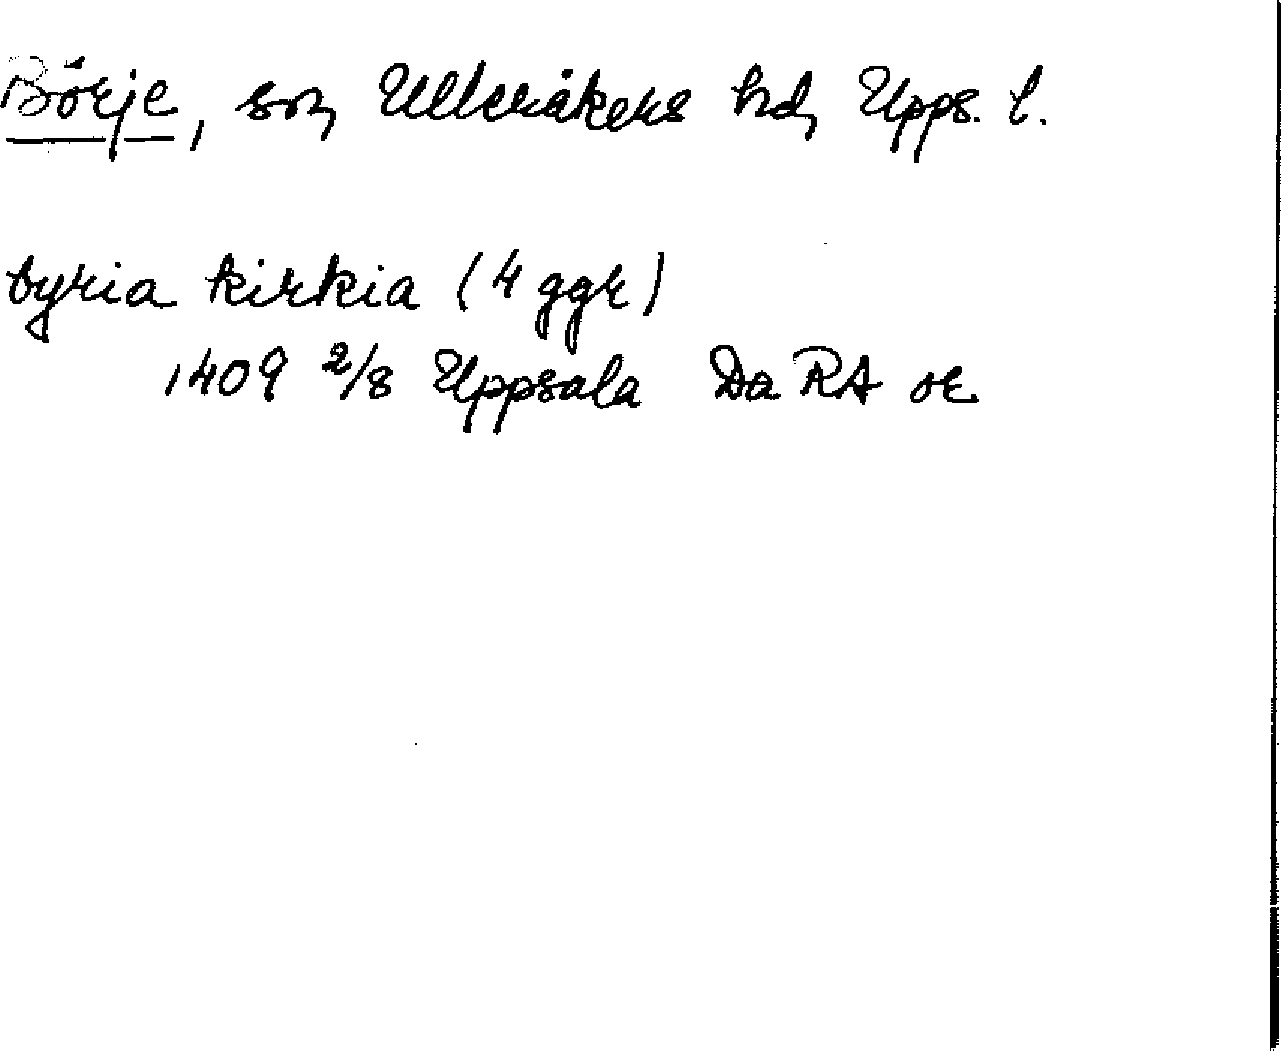 Börje, sn, Ulleråkers hd, Upps. l.
byria kirkia (4 ggr)
1409 2/8 Uppsala Da RA or